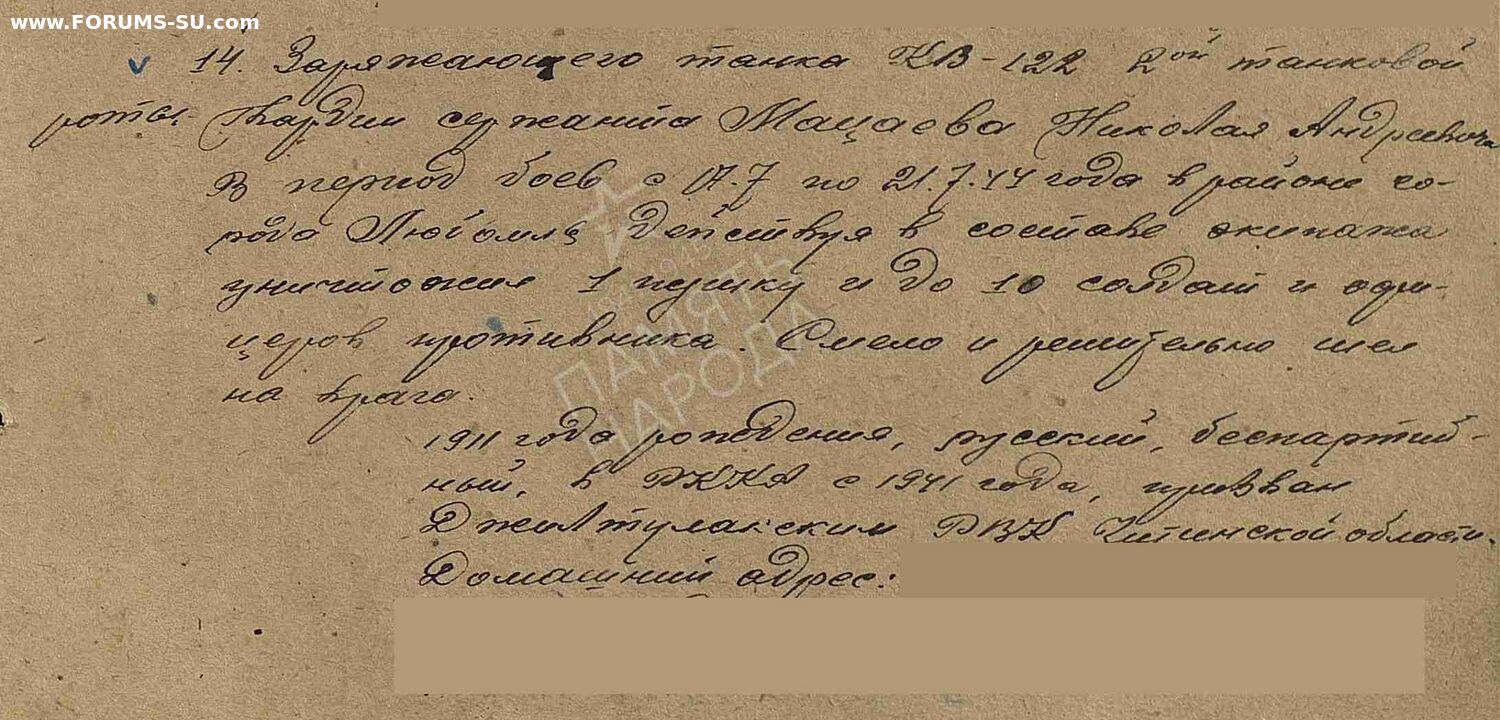 www.FORUMS-SU.com
v 14. Заряжающего танка КВ-122 2ой танковой
роты Гвардии сержанта Мацаева Николая Андреевича
В период боев с 17.7 по 21.7.44 года в районе го-
рода Любомля действуя в составе экипажа
уничтожил 1 пушку и до 10 солдат и офи-
церов противника. Смело и решительно шел
на врага.
1911 года рождения, русский, беспартий-
ный, в РККА с 1941 года, призван
Джелтулакским РВК Читинской области.
Домашний адрес:
ПАМЯТЬ
НАРОДА